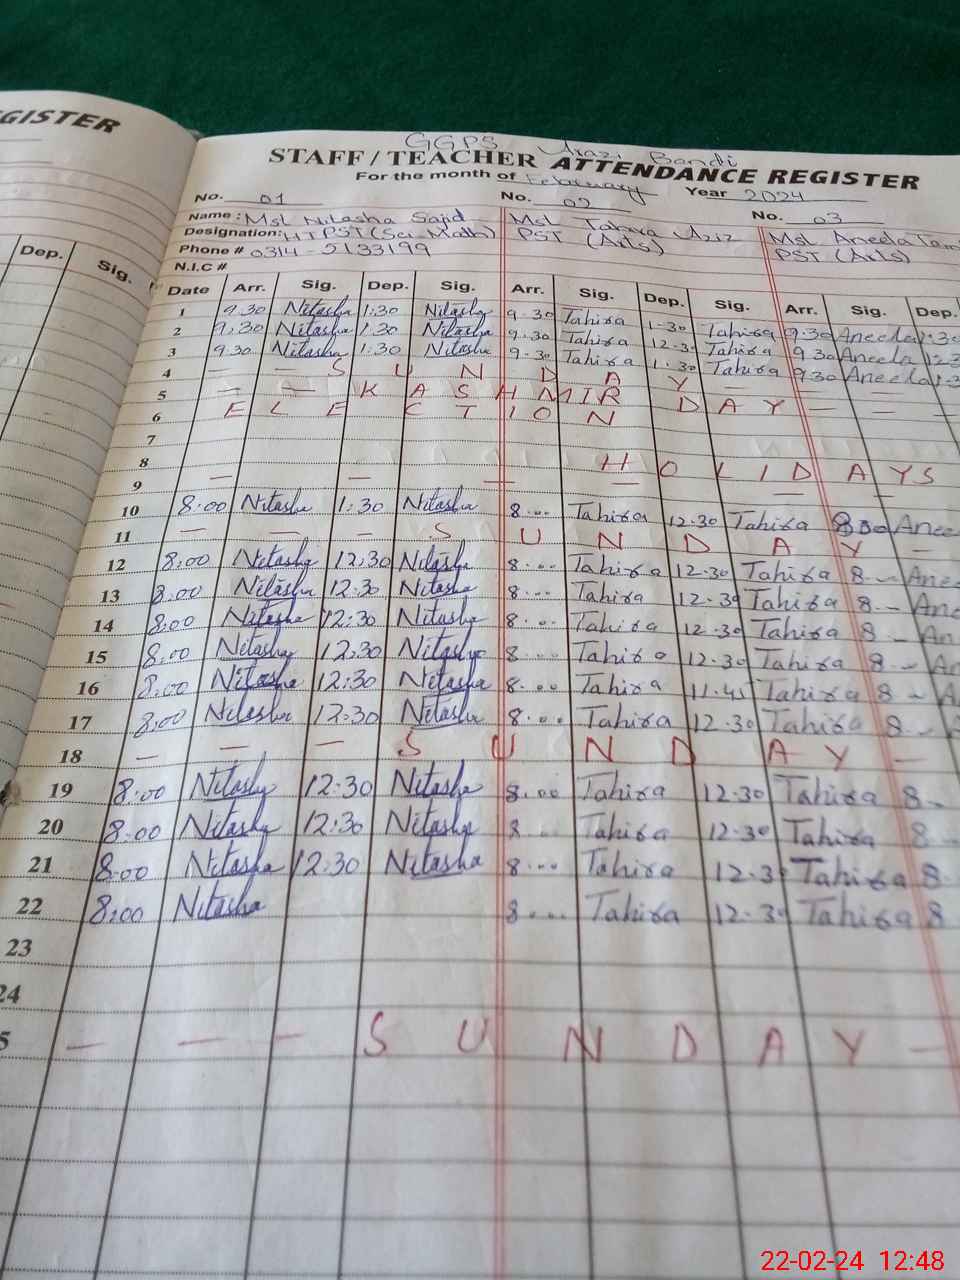 GISTER
GGPS Urazi Bandi
STAFF / TEACHER ATTENDANCE REGISTER
For the month of February Year 2024
No. 01 No. 02 No. 03
Name: Mst Nitasha Sajid Mst Tahira Aziz Mst Aneela
Designation: HTPST (Sci-Math) PST (Arts) PST (Arts)
Phone # 0314-5133199
N.I.C #
Dep. Sig.
Date Arr. Sig. Dep. Sig. Arr. Sig. Dep. Sig. Arr. Sig. Dep.
1 9.30 Nitasha 1:30 Nitasha 9.30 Tahira 1.30 Tahira 9.30 Aneela
2 9.30 Nitasha 1.30 Nitasha 9.30 Tahira 12.30 Tahira 9.30 Aneela
3 9.30 Nitasha 1:30 Nitasha 9.30 Tahira 1.30 Tahira 9.30 Aneela
4 — S U N D A Y —
5 — — K A S H M I R D A Y — —
6 E L E C T I O N
7
8 H O L I D A Y S
9 — — — — — —
10 8:00 Nitasha 1:30 Nitasha 8... Tahira 12.30 Tahira 8.00 Anee
11 — — — S U N D A Y —
12 8:00 Nitasha 12:30 Nitasha 8... Tahira 12.30 Tahira 8-- Ane
13 8:00 Nitasha 12:30 Nitasha 8... Tahira 12.30 Tahira 8-- An
14 8:00 Nitasha 12:30 Nitasha 8... Tahira 12.30 Tahira 8-- An
15 8:00 Nitasha 12:30 Nitasha 8... Tahira 12.30 Tahira 8-- An
16 8:00 Nitasha 12:30 Nitasha 8... Tahira 11.45 Tahira 8-- A
17 8:00 Nitasha 12:30 Nitasha 8... Tahira 12.30 Tahira 8--
18 — — — S U N D A Y —
19 8:00 Nitasha 12:30 Nitasha 8.00 Tahira 12.30 Tahira 8-
20 8:00 Nitasha 12:30 Nitasha 8 Tahira 12.30 Tahira 8--
21 8:00 Nitasha 12:30 Nitasha 8... Tahira 12.30 Tahira 8.
22 8:00 Nitasha 8... Tahira 12.30 Tahira 8-
23
24
5 — — — S U N D A Y —
22-02-24 12:48